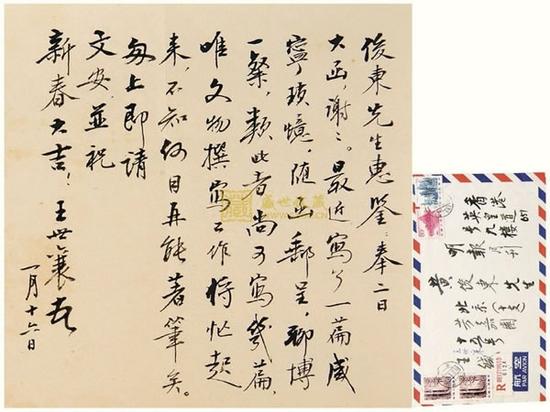 俊東先生惠鑒：奉二日
大函，謝謝。最近寫了一篇咸
寧瑣憶，随函郵呈，聊博
一粲，類此者尚可寫幾篇，
唯文物撰寫工作将忙起
来，不知何日再能著筆矣。
匆上即請
文安，並祝
新春大吉！王世襄
一月十六日
香港
英皇道651
九樓
明報月刊
黄俊東先生
北京
芳嘉園
十五号
航空
PAR AVION
R